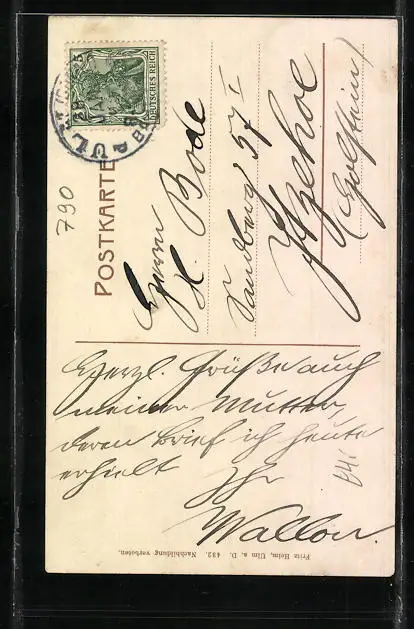 DEUTSCHES REICH
5
ULM
790
POSTKARTE
Herrn
H. Bode
Sandberg 57 I
Itzehoe
(Holstein)
Herzl. Grüße auch
meiner Mutter,
deren Brief ich heute
erhielt
Ihr
Wallon.
Fritz Heim, Ulm a. D. 432. Nachbildung verboten.